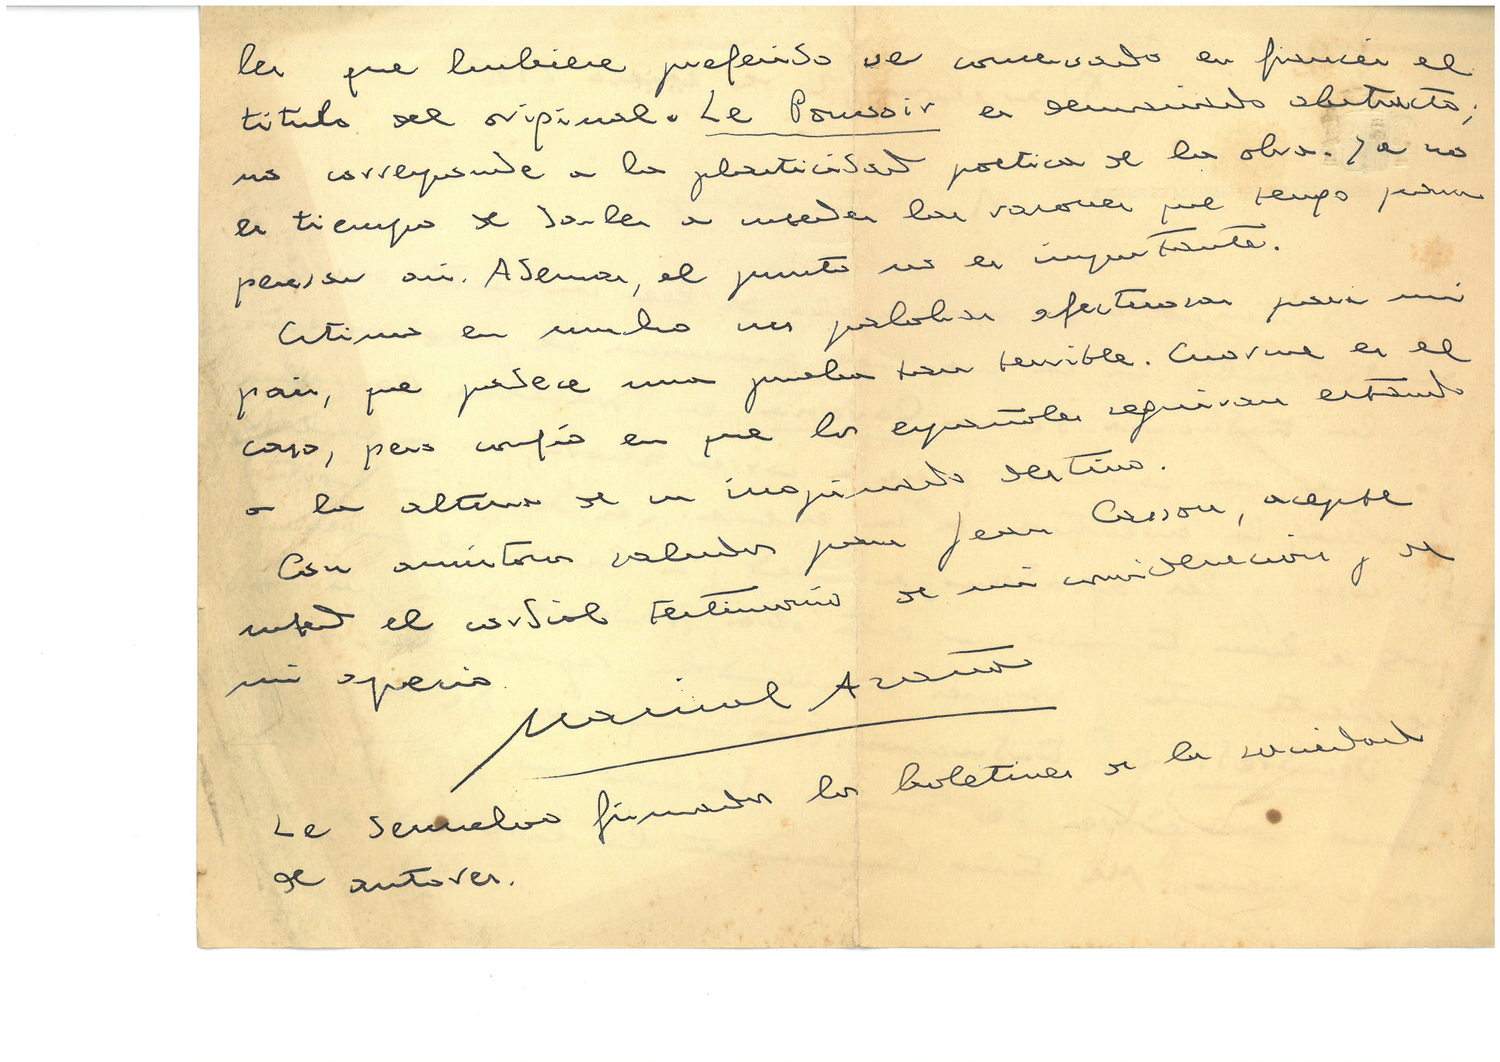 les que hubiese preferido ver conservado en francés el
título del original. Le Pouvoir es demasiado abstracto;
no corresponde a la plasticidad poética de la obra. Ya no
es tiempo de darles a ustedes las razones que tengo para
pensar así. Además, el punto no es importante.
Estimo en mucho sus palabras afectuosas para mi
país, que padece una prueba tan terrible. Enorme es el
caso, pero confío en que los españoles seguiran estando
a la altura de su inopinado destino.
Con amistosos saludos para Jean Cassou, acepte
usted el cordial testimonio de mi consideración y de
mi aprecio
Manuel Azaña
Le devuelvo firmados los boletines de la sociedad
de autores.